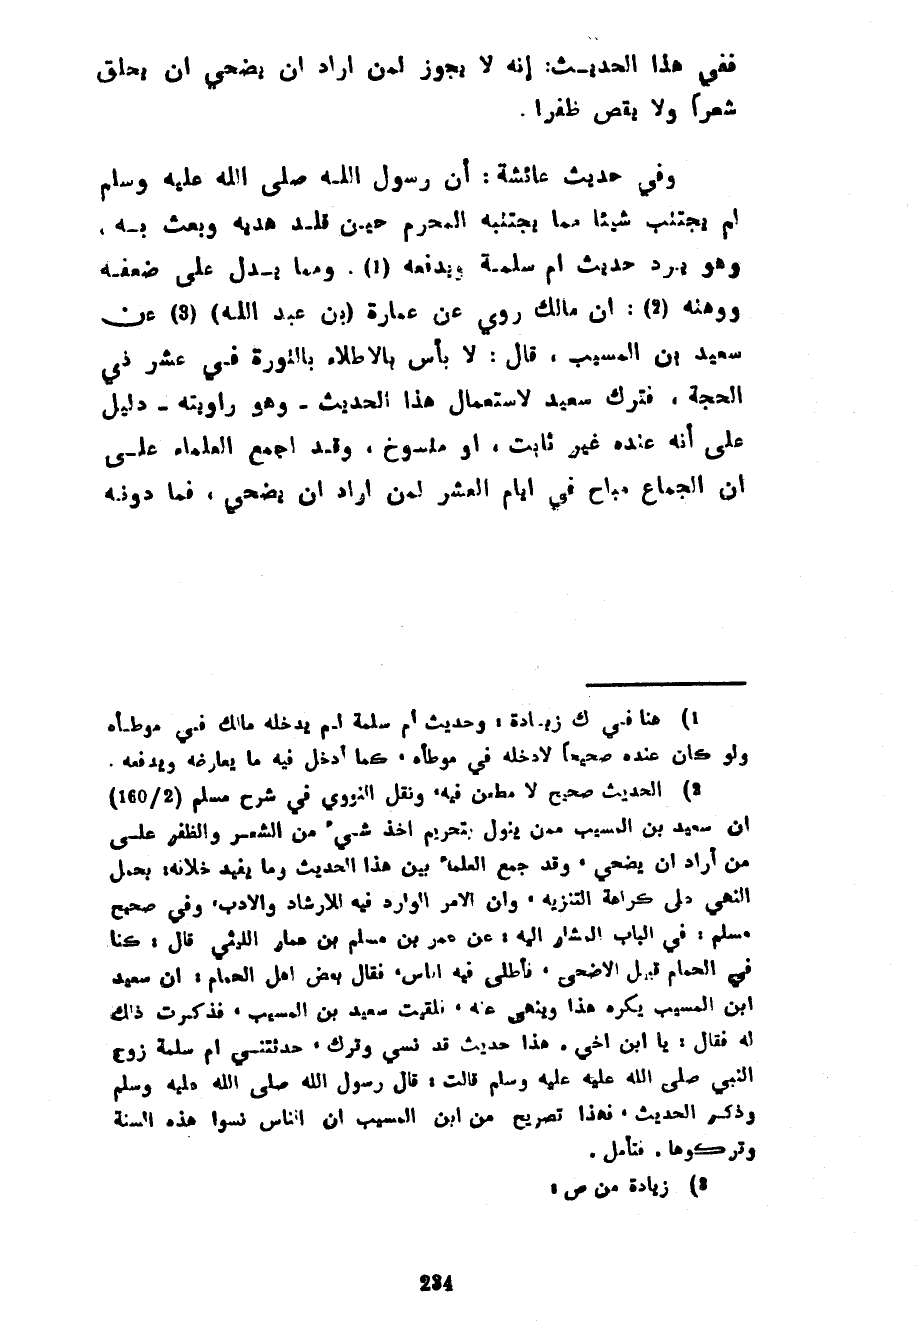 ففي هذا الحديـث: إنه لا يجوز لمن اراد ان يضحي ان يحلق
شعرا ولا يقص ظفرا .
وفي حديث عائشة : أن رسول اللـه صلى الله عليه وسلم
لم يجتنب شيئا مما يجتنبه المحرم حيـن قلـد هديه وبعث بـه ،
وهو يرد حديث ام سلمـة ويدفعه (1) . ومما يـدل على ضعفـه
ووهنه (2) : ان مالك روي عن عمارة (بن عبد اللـه) (3) عن
سعيد بن المسيب ، قال : لا بأس بالاطلاء بالنورة فـي عشر ذي
الحجة ، فترك سعيد لاستعمال هذا الحديث ـ وهو راويته ـ دليل
على أنه عنده غير ثابت ، او منسوخ ، وقـد اجمع العلماء علـى
ان الجماع مباح في ايام العشر لمن اراد ان يضحي ، فما دونـه
1) هنا فـي ك زيـادة : وحديث أم سلمة لـم يدخله مالك فـي موطـأه
ولو كان عنده صحيحا لادخله في موطأه ، كما أدخل فيه ما يعارضه ويدفعه .
2) الحديث صحيح لا مطعن فيه، ونقل النووي في شرح مسلم (160/2)
ان سعيد بن المسيب ممن يقول بتحريم اخذ شـيء من الشعـر والظفر علـى
من أراد ان يضحي ، وقد جمع العلماء بين هذا الحديث وما يفيد خلافه: بحمل
النهي على كراهة التنزيه ، وان الامر الوارد فيه للارشاد والادب، وفي صحيح
مسلم : في الباب المشار اليه : عن عمر بن مسلم بن عمار الليثي قال : كنا
في الحمام قبـل الاضحى ، فأطلى فيه اناس، فقال بعض اهل الحمام : ان سعيد
ابن المسيب يكره هذا وينهى عنه ، فلقيت سعيد بن المسيب ، فذكرت ذلك
له فقال : يا ابن اخي . هذا حديث قد نسي وترك ، حدثتنـي ام سلمة زوج
النبي صلى الله عليه عليه وسلم قالت : قال رسول الله صلى الله عليه وسلم
وذكـر الحديث ، فهذا تصريح من ابن المسيب ان الناس نسوا هذه السنة
وتركوها . فتأمل .
3) زيادة من ص :
234